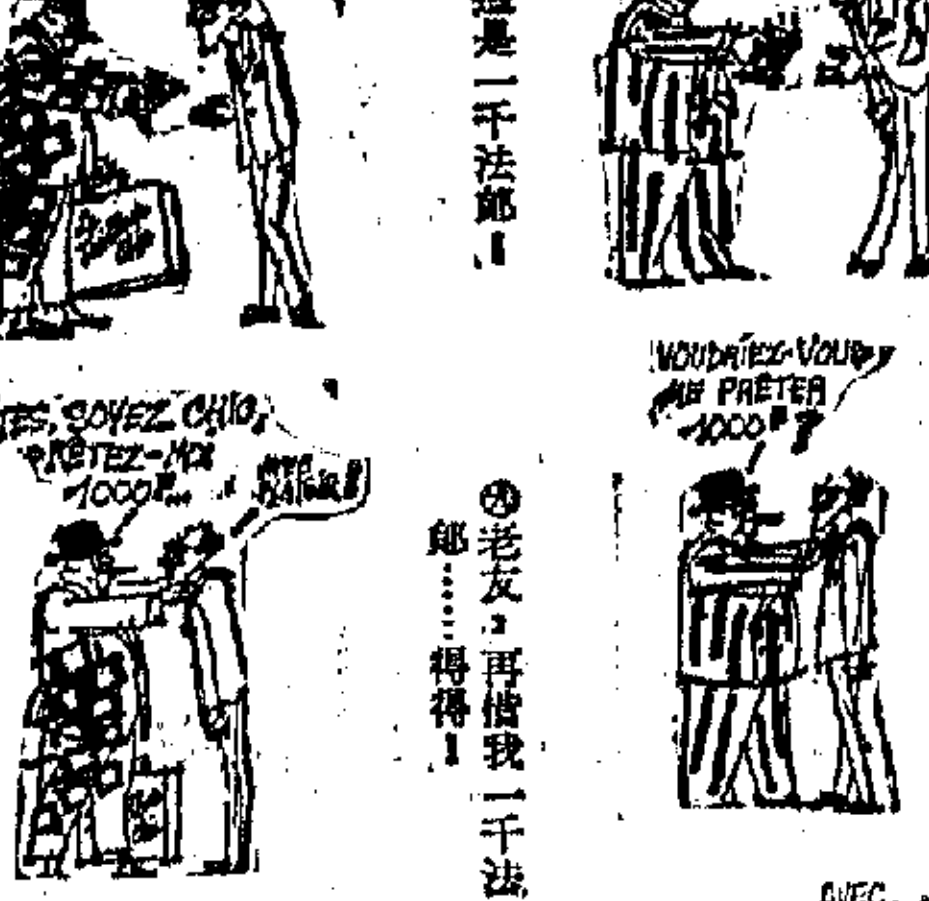 一千法郎！
VOUDRIEZ-VOUS
ME PRÊTER
1000F ?
SOYEZ CHIC,
PRÊTEZ-MOI
1000F...
老友，再借我一千法
郎……得得！
AVEC